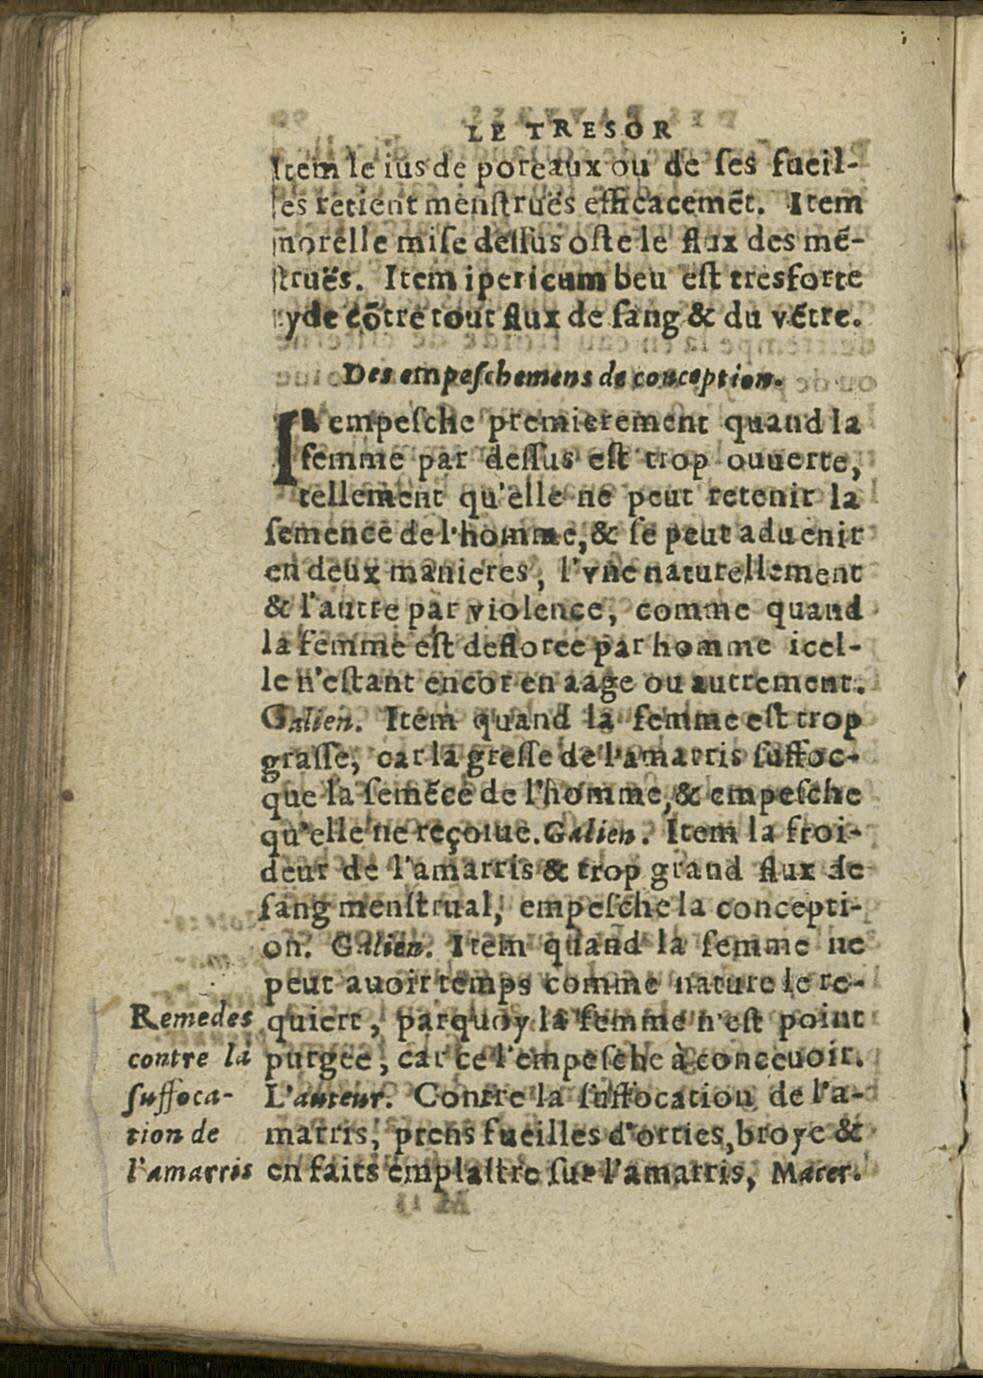 LE TRESOR
Item le ius de poreaux ou de ſes fueil-
les retient menſtruës efficacemēt. Item
morelle miſe deſſus oſte le flux des mē-
ſtruës. Item ipericum beu eſt tresforte
ayde cōtre tout flux de ſang & du vētre.
Des empeſchemens de conception.
IL empeſche premierement quand la
femme par deſſus eſt trop ouuerte,
tellement qu'elle ne peut retenir la
ſemence de l'homme, & ſe peut aduenir
en deux manieres, l'vne naturellement
& l'autre par violence, comme quand
la femme eſt defloree par homme icel-
le n'eſtant encor en aage ou autrement.
Galien. Item quand la femme eſt trop
graſſe, car la greſſe de l'amarris ſuffoc-
que la ſemēce de l'homme, & empeſche
qu'elle ne reçoiue. Galien. Item la froi-
deur de l'amarris & trop grand flux de
ſang menſtrual, empeſche la concepti-
on. Galien. Item quand la femme ne
peut auoir temps comme nature le re-
quiert, parquoy la femme n'eſt point
purgee, car ce l'empeſche à conceuoir.
L'auteur. Contre la ſuffocation de l'a-
marris, prens fueilles d'orties, broye &
en faits emplaſtre ſur l'amarris, Macer.
Remedes
contre la
ſuffoca-
tion de
l'amarris